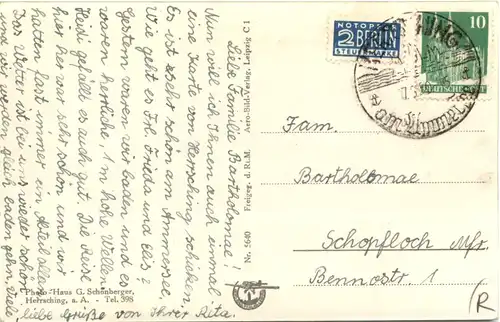 Liebe Familie Bartholomae!
Nun will ich Ihnen auch einmal
eine Karte von Herrsching schicken.
Es ist sehr schön am Ammersee.
Wie geht es Frl. Frieda und Elis?
Gestern waren wir baden und es
waren herrliche, 1 m hohe Wellen.
Heidi gefällt es auch gut. Die Reise
hier her war sehr schön und wir
hatten fast immer ein Abteil allein.
Das Wetter ist bei uns wieder schön
und wir werden gleich baden gehn. Viele
liebe Grüße von Ihrer Rita.
Photo-Haus G. Schönberger,
Herrsching, a. A. - Tel. 398
Aero-Bild-Verlag, Leipzig C 1
Freigeg. d. R.L.M.
Nr. 5640
NOTOPFER
2 BERLIN
STEUERMARKE
10
DEUTSCHE POST
am Ammersee
Fam.
Bartholomae
Schopfloch Mfr.
Bennostr. 1
R